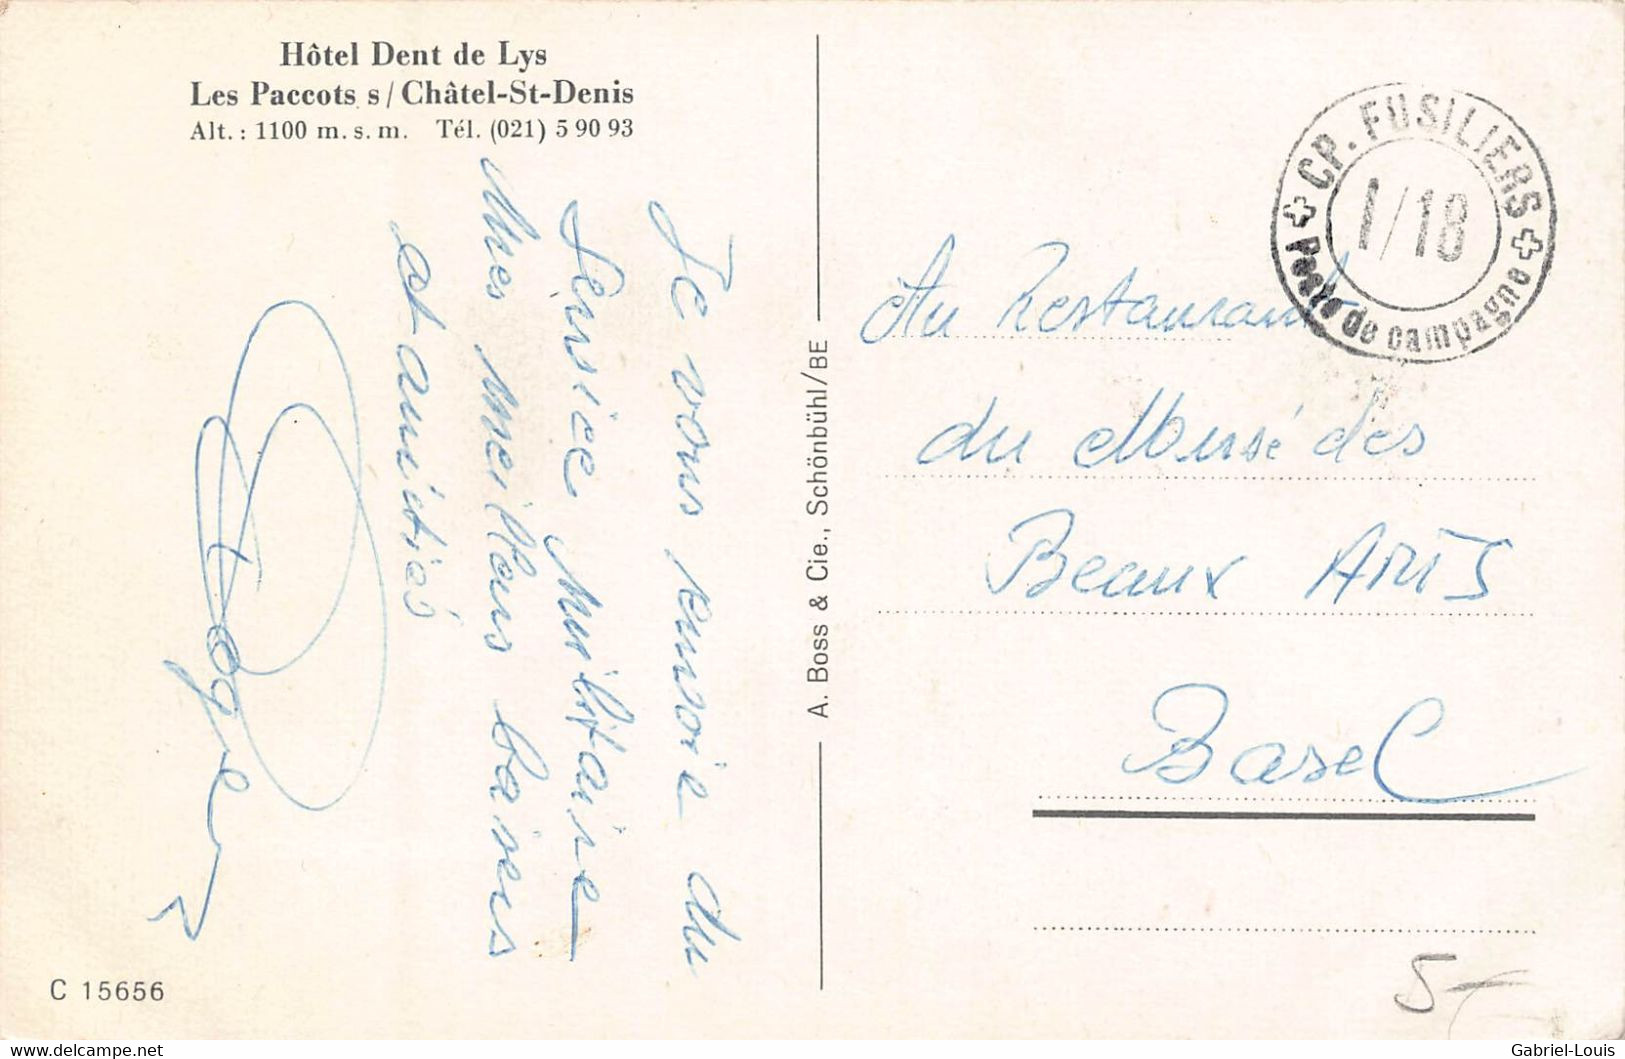 Hôtel Dent de Lys
Les Paccots s/Châtel-St-Denis
Alt. : 1100 m. s. m. Tél. (021) 5 90 93
Je vous envoie du
Service Militaire
Mes meilleurs baisers
et amitiés
Roger
C 15656
A. Boss & Cie., Schönbühl/BE
CP. FUSILIERS
I/18
Poste de campagne
Au Restaurant
du Musé des
Beaux ARTS
Basel
5-
delcampe.net
Gabriel-Louis